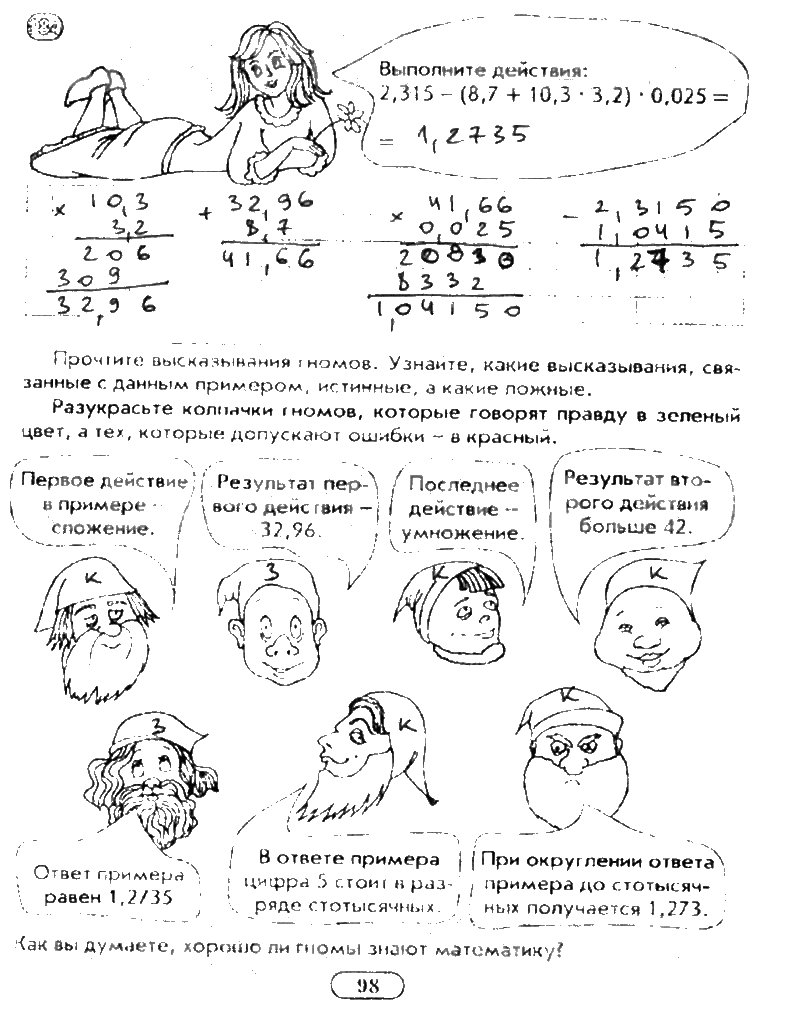 Выполните действия:
2,315 – (8,7 + 10,3 · 3,2) · 0,025 =
= 1,2735
× 10,3
3,2
206
309
32,96
+ 32,96
8,7
41,66
× 41,66
0,025
20830
8332
1,04150
– 2,3150
1,0415
1,2735
Прочтите высказывания гномов. Узнайте, какие высказывания, свя-
занные с данным примером, истинные, а какие ложные.
Разукрасьте колпачки гномов, которые говорят правду в зеленый
цвет, а тех, которые допускают ошибки – в красный.
Первое действие
в примере –
сложение.
Результат пер-
вого действия –
32,96.
Последнее
действие –
умножение.
Результат вто-
рого действия
больше 42.
К
З
К
К
З
К
К
Ответ примера
равен 1,2735
В ответе примера
цифра 5 стоит в раз-
ряде стотысячных.
При округлении ответа
примера до стотысяч-
ных получается 1,273.
Как вы думаете, хорошо ли гномы знают математику?
98